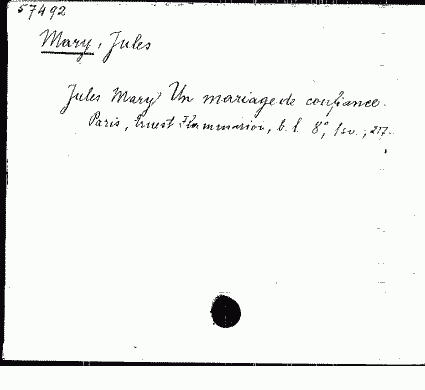 57492
Mary, Jules
Jules Mary Un mariage de confiance.
Paris, Ernest Flammarion, b. l. 8°, 1 sv., 217.